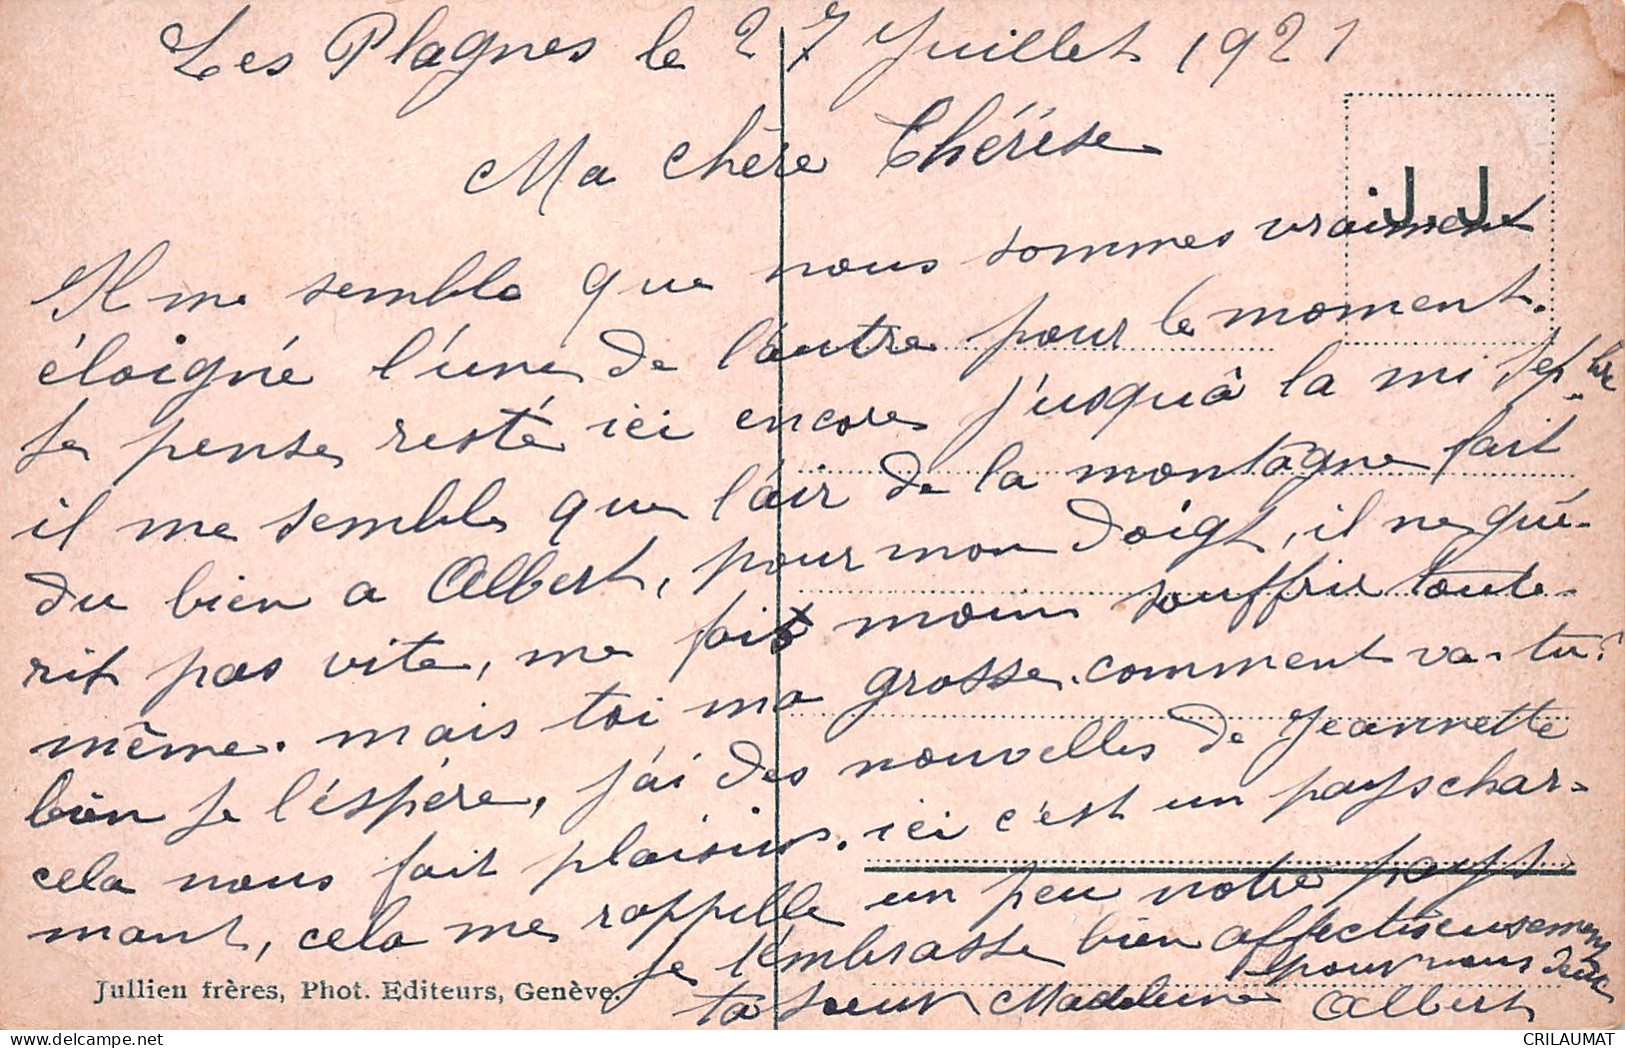 Les Plagnes le 27 Juillet 1921
Ma chère Thérèse
J.J.
Il me semble que nous sommes vraiment
éloigné l'une de l'autre pour le moment.
Je pense resté ici encore j'usquâ la mi Sept.bre
il me semble que l'air de la montagne fait
du bien a Albert, pour mon doigt, il ne gué-
rit pas vite, me fait moin souffrir toute-
même. mais toi ma grosse. comment va-tu?
bien je l'éspère, j'ai des nouvelles de Jeannette
cela nous fait plaisir. ici c'est un pays char-
mant, cela me rappelle un peu notre pays.
je t'embrasse bien affectueusement
pour nous deux
ta sœur Madeleine Albert
Jullien frères, Phot. Editeurs, Genève.
CRILAUMAT